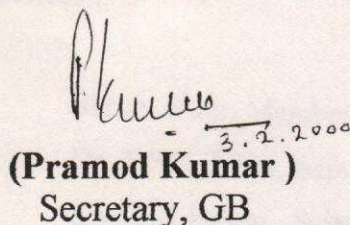 P. Kumar
3.2.2000
(Pramod Kumar )
Secretary, GB